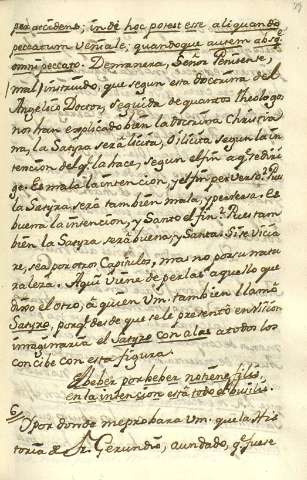 per accidens; inde hoc potest esse aliquando
peccatum veniale, quandoque autem absq.e
omni peccato. De manera, Señor Penisense,
mal instruido, que segun esta doctrina del
Angelico Doctor, seguida de quantos Theologos
nos han explicado bien la doctrina Christia
na, la Satyra será licita, ò ilicita segun la in
tencion del q.e la hace, segun el fin a q.e se diri
ge. Es mala la intencion, y el fin perverso? Pues
la Satyra será tambien mala, y perversa. Es
buena la intencion, y Santo el fin? Pues tam
bien la Satyra será buena, y Santa. Si se vicia
re, sea por otros Capitulos, mas no por su natu
raleza. Aqui viene de perlas aquello que
dixo el otro, à quien Vm. tambien llamará
Satyro, porq.e desde que se le presentò en vision
imaginaria el Satyro con alas a todos los
concibe con esta figura.
Beber por beber no tiene filis,
en la intencion está todo el busilis.
6 Y por donde me probara Vm. que la His
toria de Fr. Gerundio, aun dado, q.e fuese